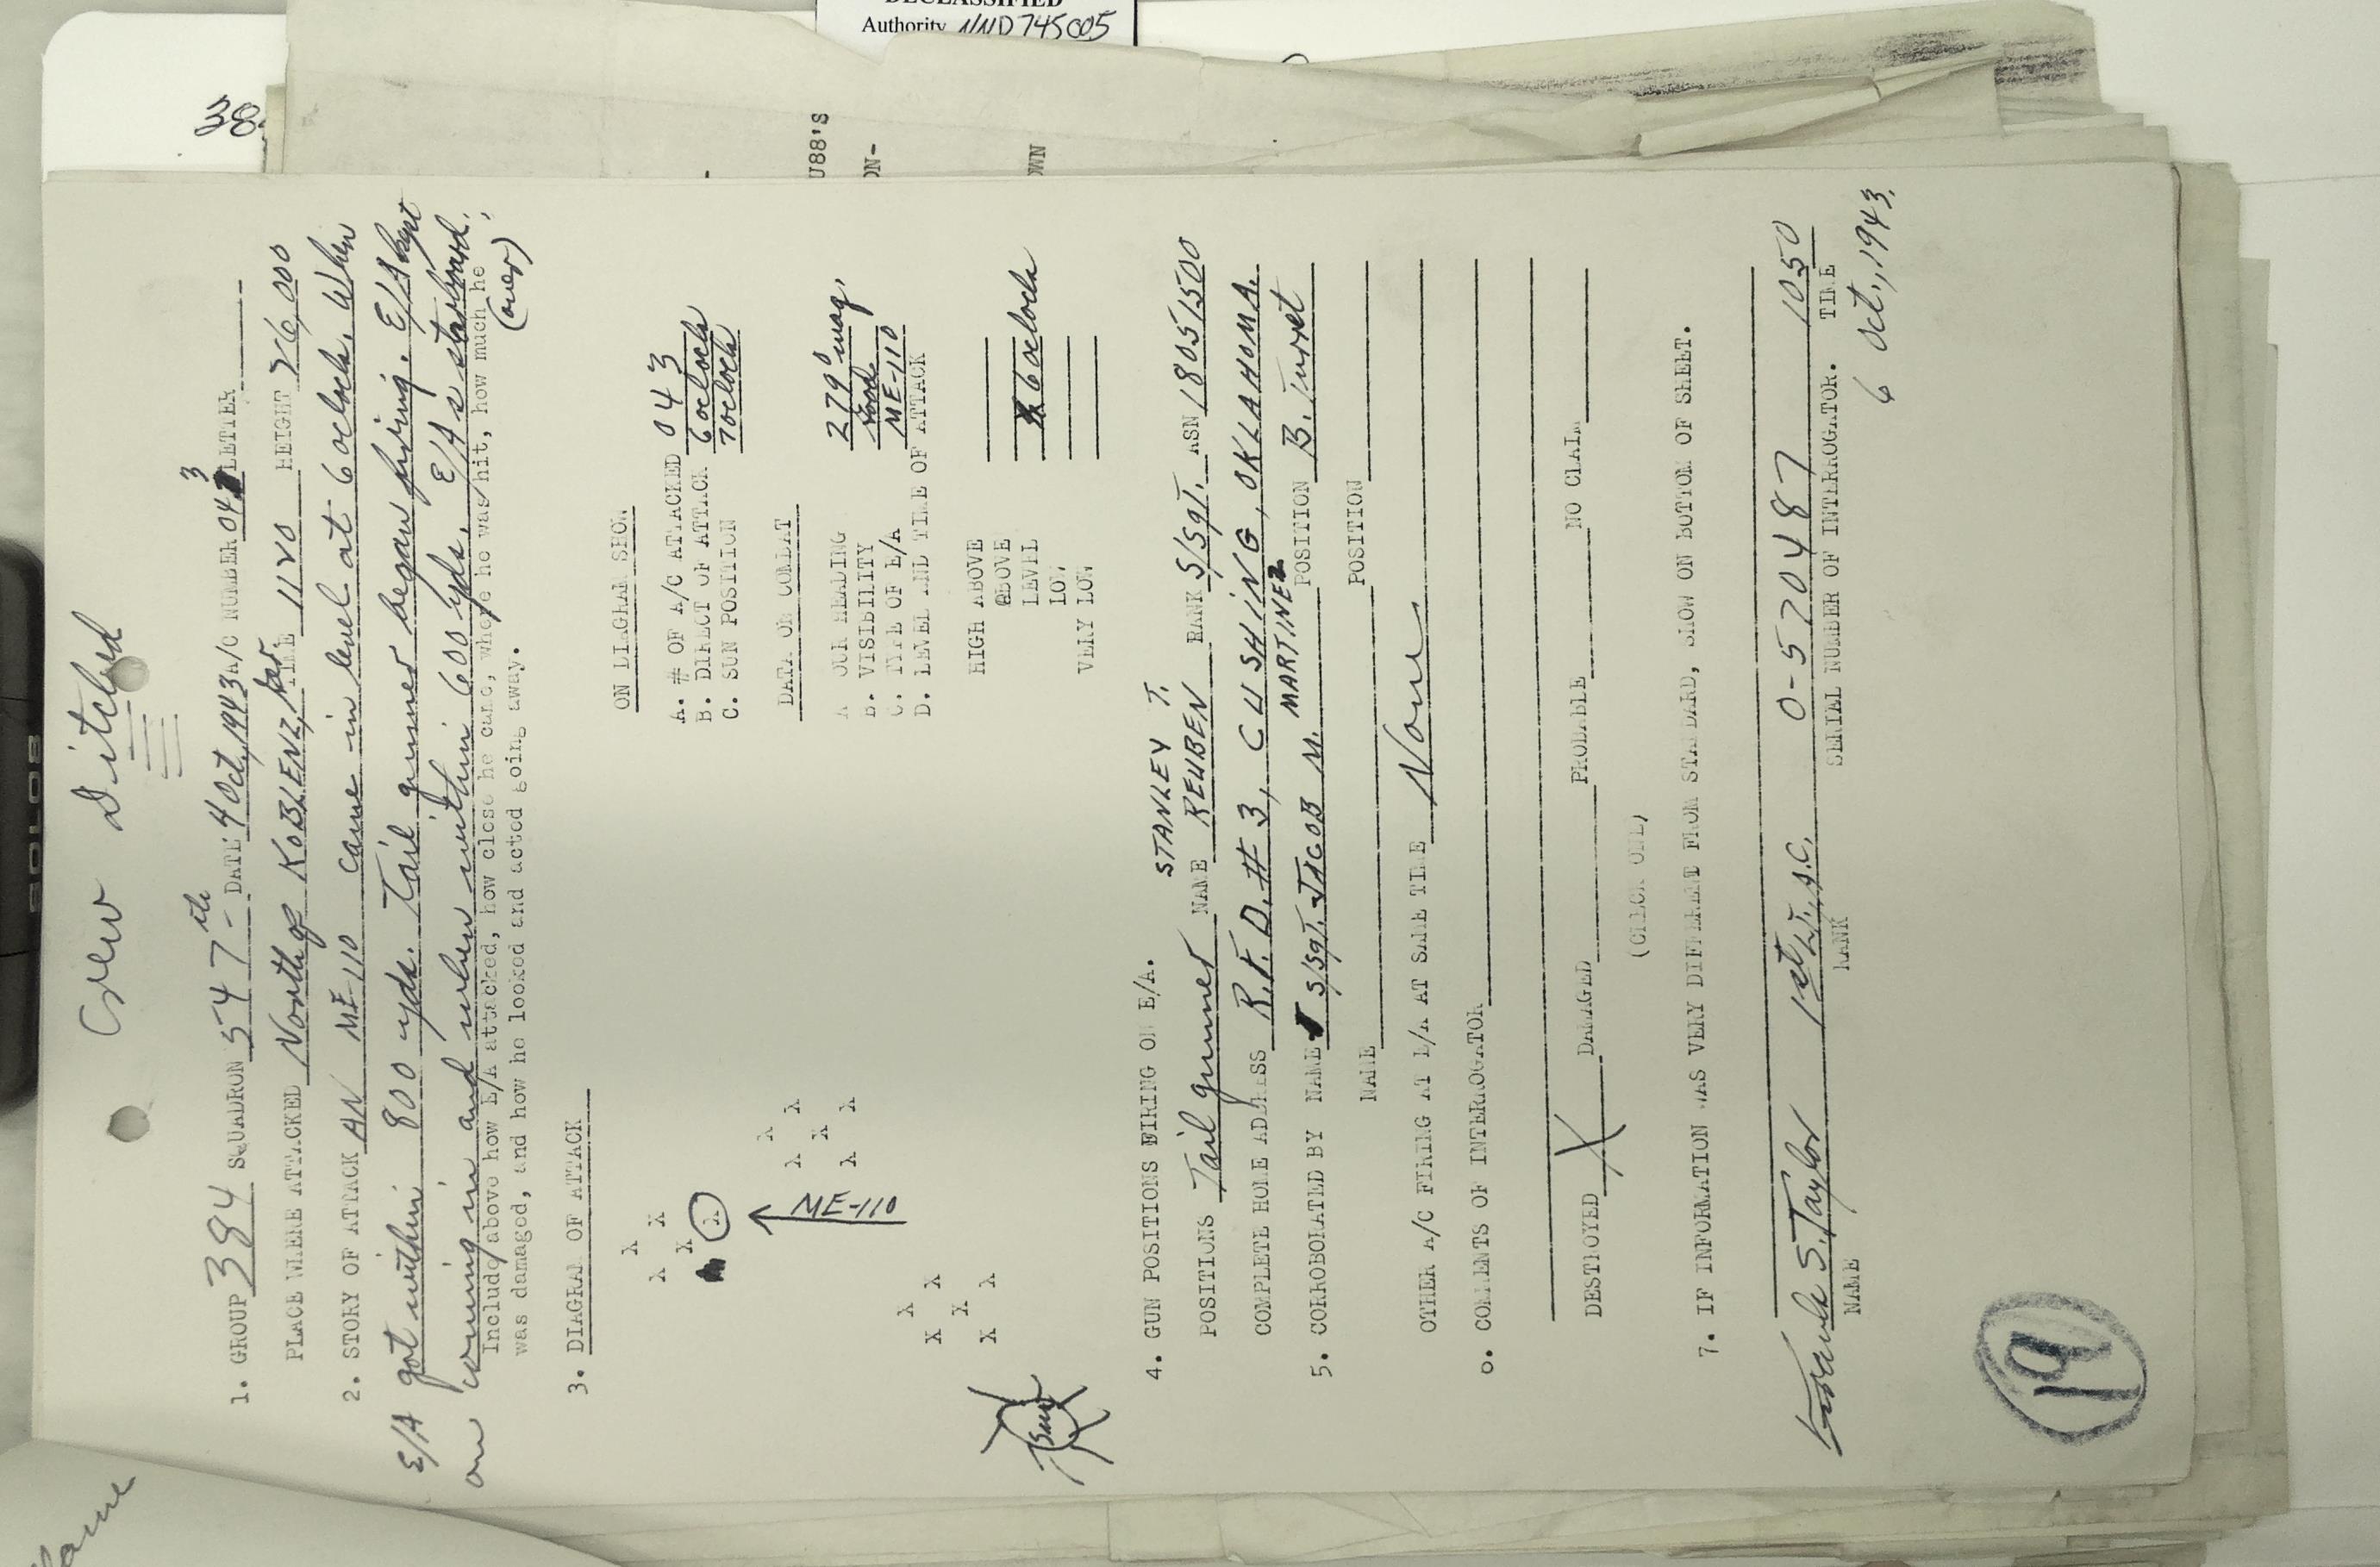 DECLASSIFIED
Authority NND 745005
38
U88'S
ON-
OWN
Crew Ditched
1. GROUP 384 SQUADRON 547th DATE 4 Oct, 1943 A/C NUMBER 043 LETTER
3
PLACE WHERE ATTACKED North of KOBLENZ, Ger. TIME 1120 HEIGHT 26,000
2. STORY OF ATTACK AN ME-110 came in level at 6 oclock. When
E/A got within 800 yds. Tail gunner began firing. E/A kept
on coming in and when within 600 yds. E/A's starboard.
Include above how E/A attacked, how close he came, where he was hit, how much he
was damaged, and how he looked and acted going away.
(over)
3. DIAGRAM OF ATTACK
ON DIAGRAM SHOW
A. # OF A/C ATTACKED 043
B. DIRECT OF ATTACK 6 oclock
C. SUN POSITION 7 oclock
DATA ON COMBAT
A OUR HEADING 279° mag.
B. VISIBILITY Good
C. TYPE OF E/A ME-110
D. LEVEL AND TIME OF ATTACK
HIGH ABOVE
ABOVE
LEVEL X 6 oclock
LOW
VERY LOW
X X X X X
X X X X X X
X X X X X X
ME-110
Sun
4. GUN POSITIONS FIRING ON E/A.
STANLEY T.
POSITIONS Tail gunner NAME REUBEN RANK S/Sgt. ASN 18051500
COMPLETE HOME ADDRESS R.F.D. # 3, CUSHING, OKLAHOMA.
5. CORROBORATED BY NAME S/Sgt. JACOB M. MARTINEZ POSITION B. Turret
NAME POSITION
OTHER A/C FIRING AT E/A AT SAME TIME None
6. COMMENTS OF INTERROGATOR
DESTROYED X DAMAGED PROBABLE NO CLAIM
(CHECK ONE)
7. IF INFORMATION WAS VERY DIFFERENT FROM STANDARD, SHOW ON BOTTOM OF SHEET.
S. Taylor 1st Lt., A.C. 0-570487 1050
NAME RANK SERIAL NUMBER OF INTERROGATOR. TIME
6 Oct., 1943.
19